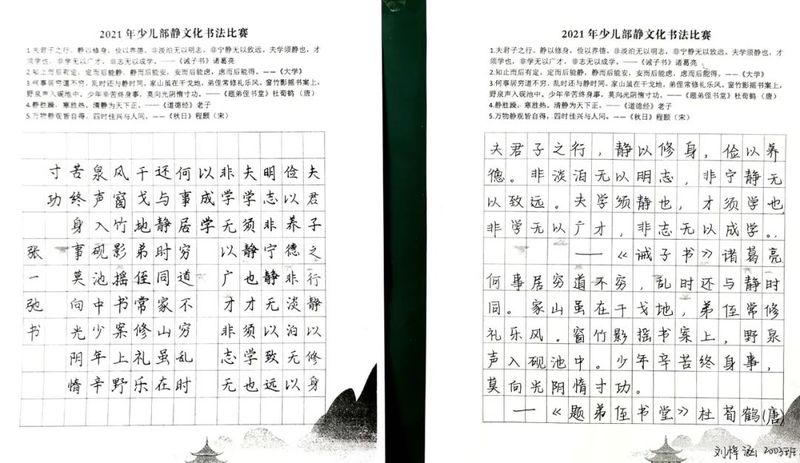 2021年少儿部静文化书法比赛
1.夫君子之行,静以修身,俭以养德。非淡泊无以明志,非宁静无以致远。夫学须静也,才
须学也,非学无以广才,非志无以成学。——《诫子书》诸葛亮
2.知止而后有定,定而后能静,静而后能安,安而后能虑,虑而后能得。——《大学》
3.何事居穷道不穷,乱时还与静时同。家山虽在干戈地,弟侄常修礼乐风。窗竹影摇书案上,
野泉声入砚池中。少年辛苦终身事,莫向光阴惰寸功。——《题弟侄书堂》杜荀鹤(唐)
4.静胜躁,寒胜热,清静为天下正。——《道德经》老子
5.万物静观皆自得,四时佳兴与人同。——《秋日》程颢(宋)
夫君子之行静以修身
俭以养德非淡泊无以
明志非宁静无以致远
夫学须静也才须学也
非学无以广才非志无
以成学
何事居穷道不穷乱时
还与静时同家山虽在
干戈地弟侄常修礼乐
风窗竹影摇书案上野
泉声入砚池中少年辛
苦终身事莫向光阴惰
寸功
张一弛书
2021年少儿部静文化书法比赛
1.夫君子之行,静以修身,俭以养德。非淡泊无以明志,非宁静无以致远。夫学须静也,才
须学也,非学无以广才,非志无以成学。——《诫子书》诸葛亮
2.知止而后有定,定而后能静,静而后能安,安而后能虑,虑而后能得。——《大学》
3.何事居穷道不穷,乱时还与静时同。家山虽在干戈地,弟侄常修礼乐风。窗竹影摇书案上,
野泉声入砚池中。少年辛苦终身事,莫向光阴惰寸功。——《题弟侄书堂》杜荀鹤(唐)
4.静胜躁,寒胜热,清静为天下正。——《道德经》老子
5.万物静观皆自得,四时佳兴与人同。——《秋日》程颢(宋)
夫君子之行,静以修身,俭以养
德。非淡泊无以明志,非宁静无
以致远。夫学须静也,才须学也
非学无以广才,非志无以成学。
——《诫子书》诸葛亮
何事居穷道不穷,乱时还与静时
同。家山虽在干戈地,弟侄常修
礼乐风。窗竹影摇书案上,野泉
声入砚池中。少年辛苦终身事,
莫向光阴惰寸功。
—《题弟侄书堂》杜荀鹤(唐)
刘梓涵 2003班